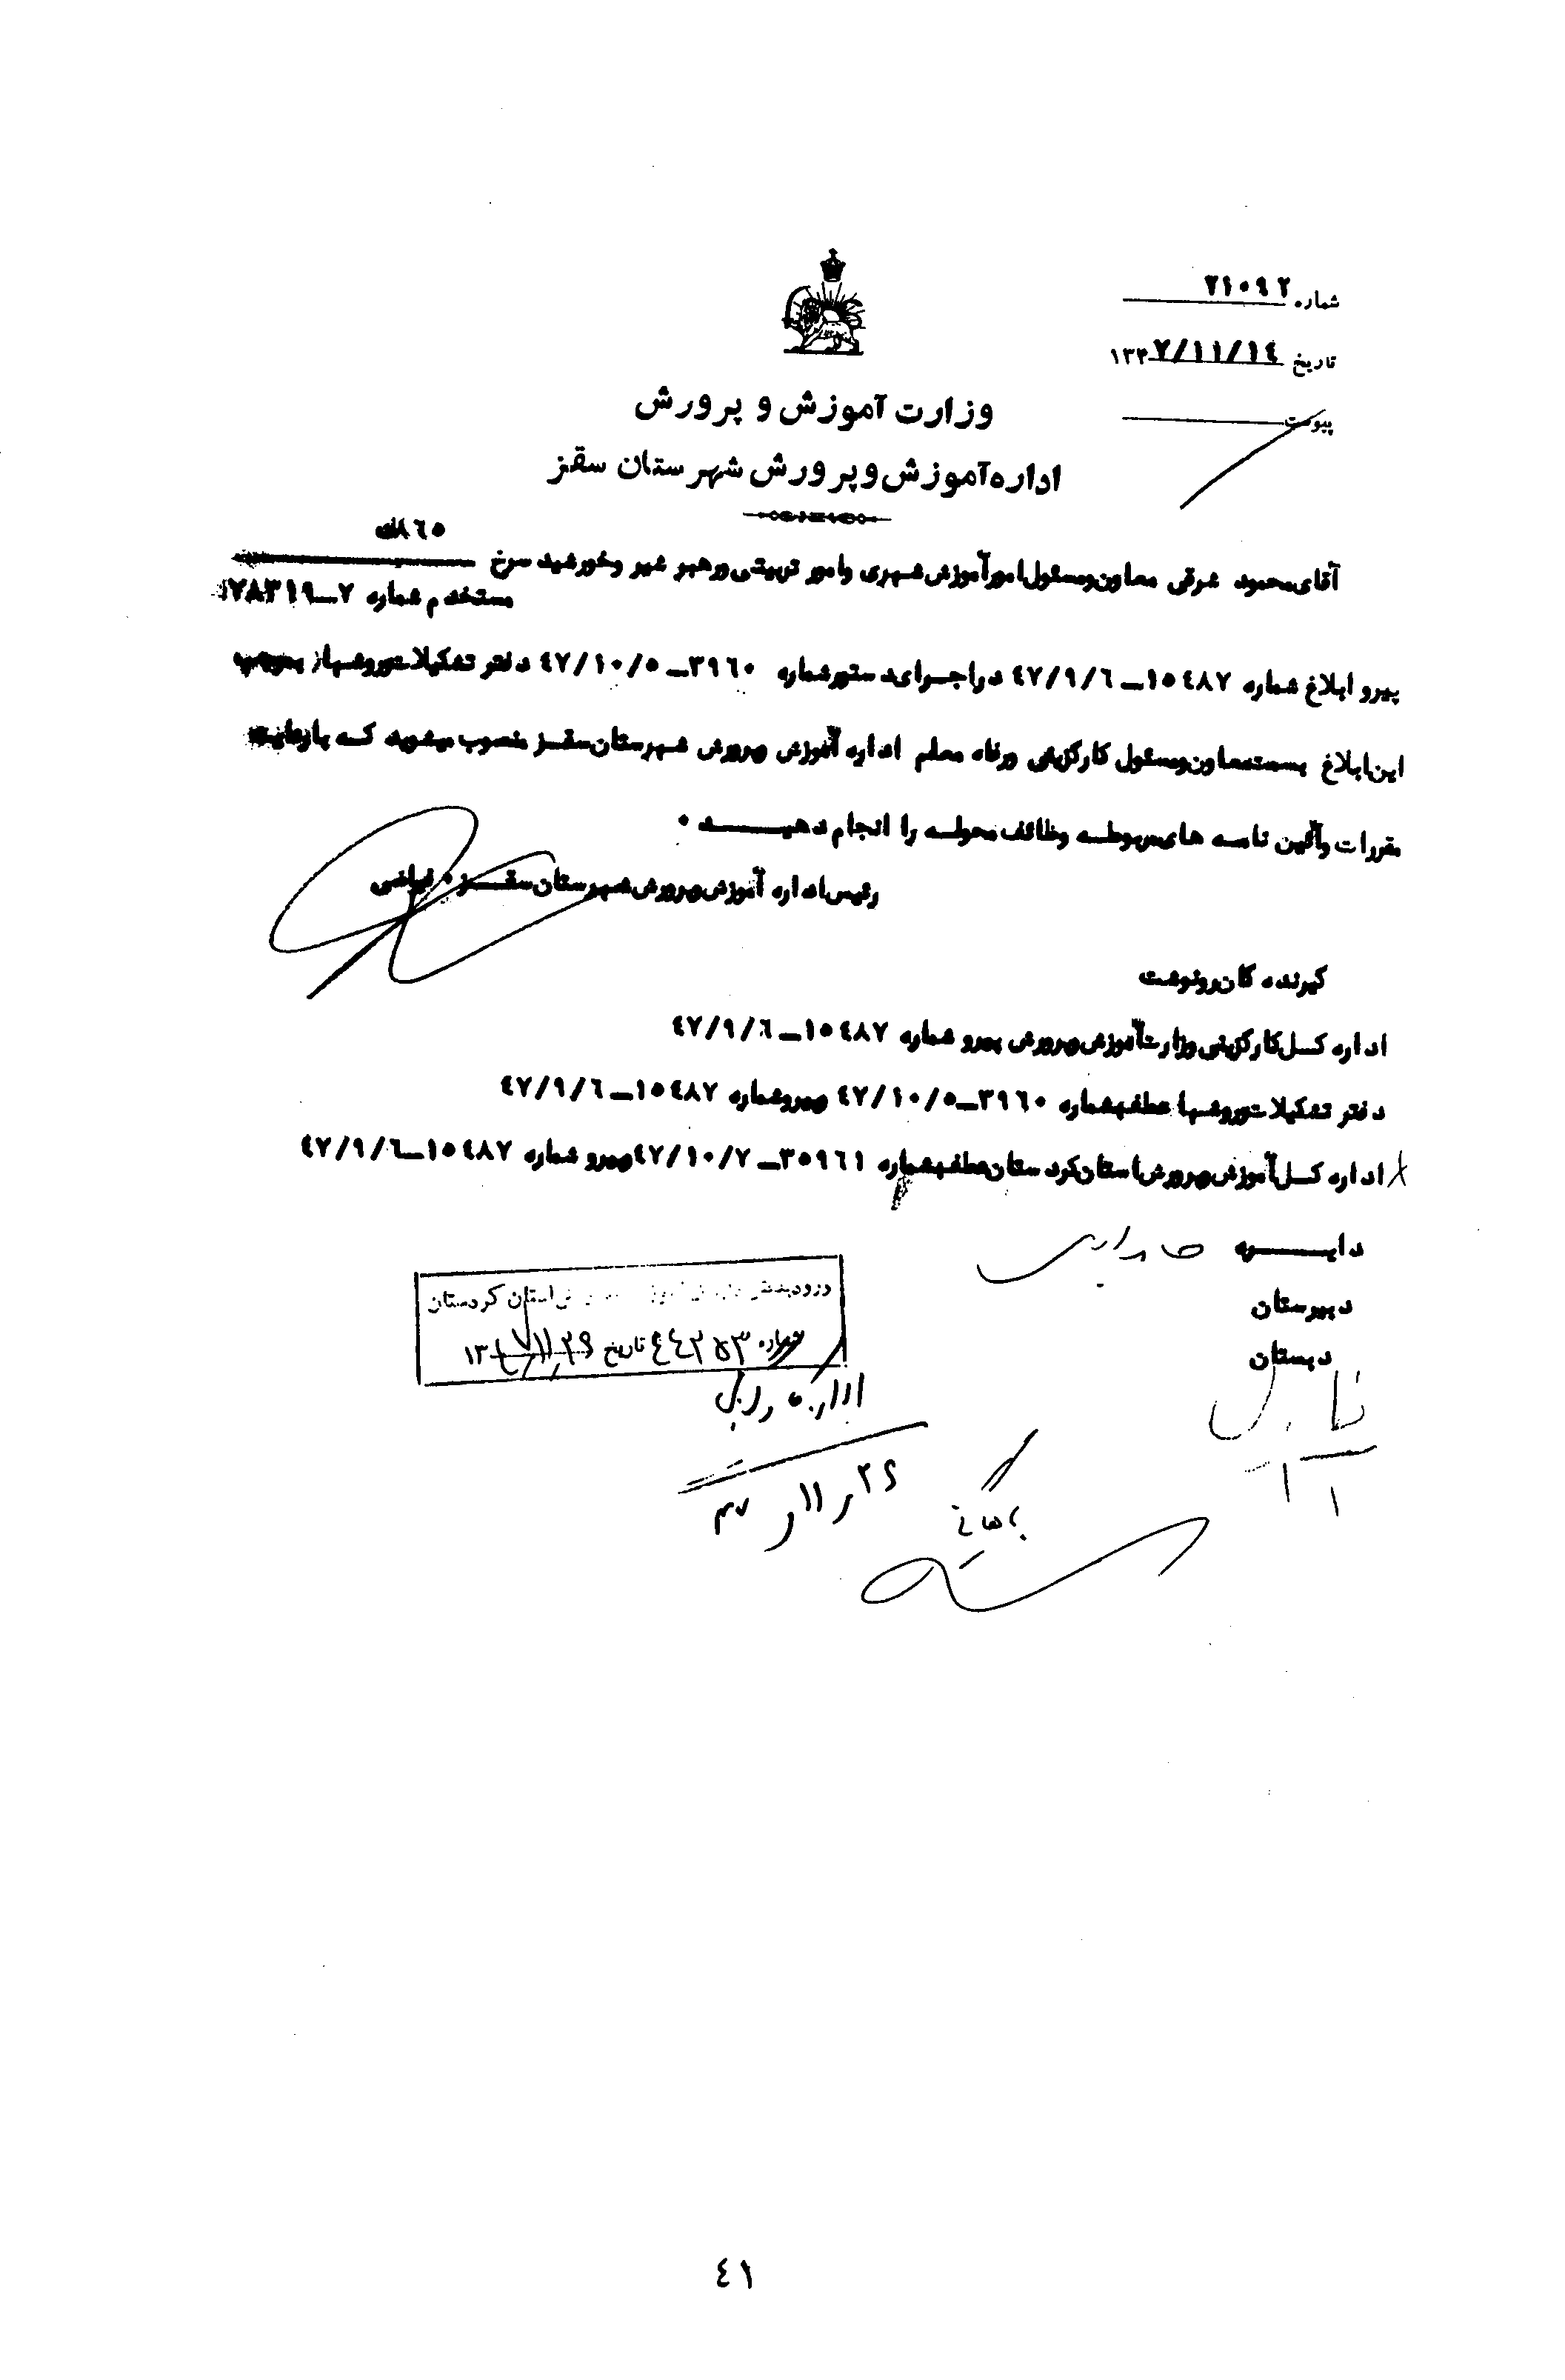 شماره ۲۱۰۹۲
تاریخ ۱۳۴۷/۱۱/۱۴
پیوست
وزارت آموزش و پرورش
اداره آموزش و پرورش شهرستان سقز
آقای محمود شرقی معاون و مسئول امور آموزش شهری و امور تربیتی و رهبر شیر و خورشید سرخ
۸٦٥
مستخدم شماره ۷ــ۷۸۳۱۹
پیرو ابلاغ شماره ۱۵٤۸۷ــ ٤۷/۹/٦ در اجرای دستور شماره ۳۹٦۰ــ ٤۷/۱۰/۵ دفتر تشکیلات و روشها از بموجب
این ابلاغ بسمت معاون و مسئول کارگزینی و رفاه معلم اداره آموزش و پرورش شهرستان سقز منصوب میشوید که با رعایت
مقررات و آئین نامه های مربوطه وظائف محوله را انجام دهید ۰
رئیس اداره آموزش و پرورش شهرستان سقز ۰ فیاضی
گیرنده گان رونوشت
اداره کل کارگزینی وزارت آموزش و پرورش پیرو شماره ۱۵٤۸۷ــ ٤۷/۹/٦
دفتر تشکیلات و روشها عطف بشماره ۳۹٦۰ــ٤۷/۱۰/۵ و پیرو شماره ۱۵٤۸۷ــ ٤۷/۹/٦
اداره کل آموزش و پرورش استان کردستان عطف بشماره ۳۵۹٦۱ــ ٤۷/۱۰/۷ و پیرو شماره ۱۵٤۸۷ــ٤۷/۹/٦
دایره
دبیرستان
دبستان
استان کردستان
شماره ٤٤۲۵۳ تاریخ ۱۳٤۷/۱۱/۲۹
۲۹ ر ۱۱ ر ۴۷
بایگانی
٤۱